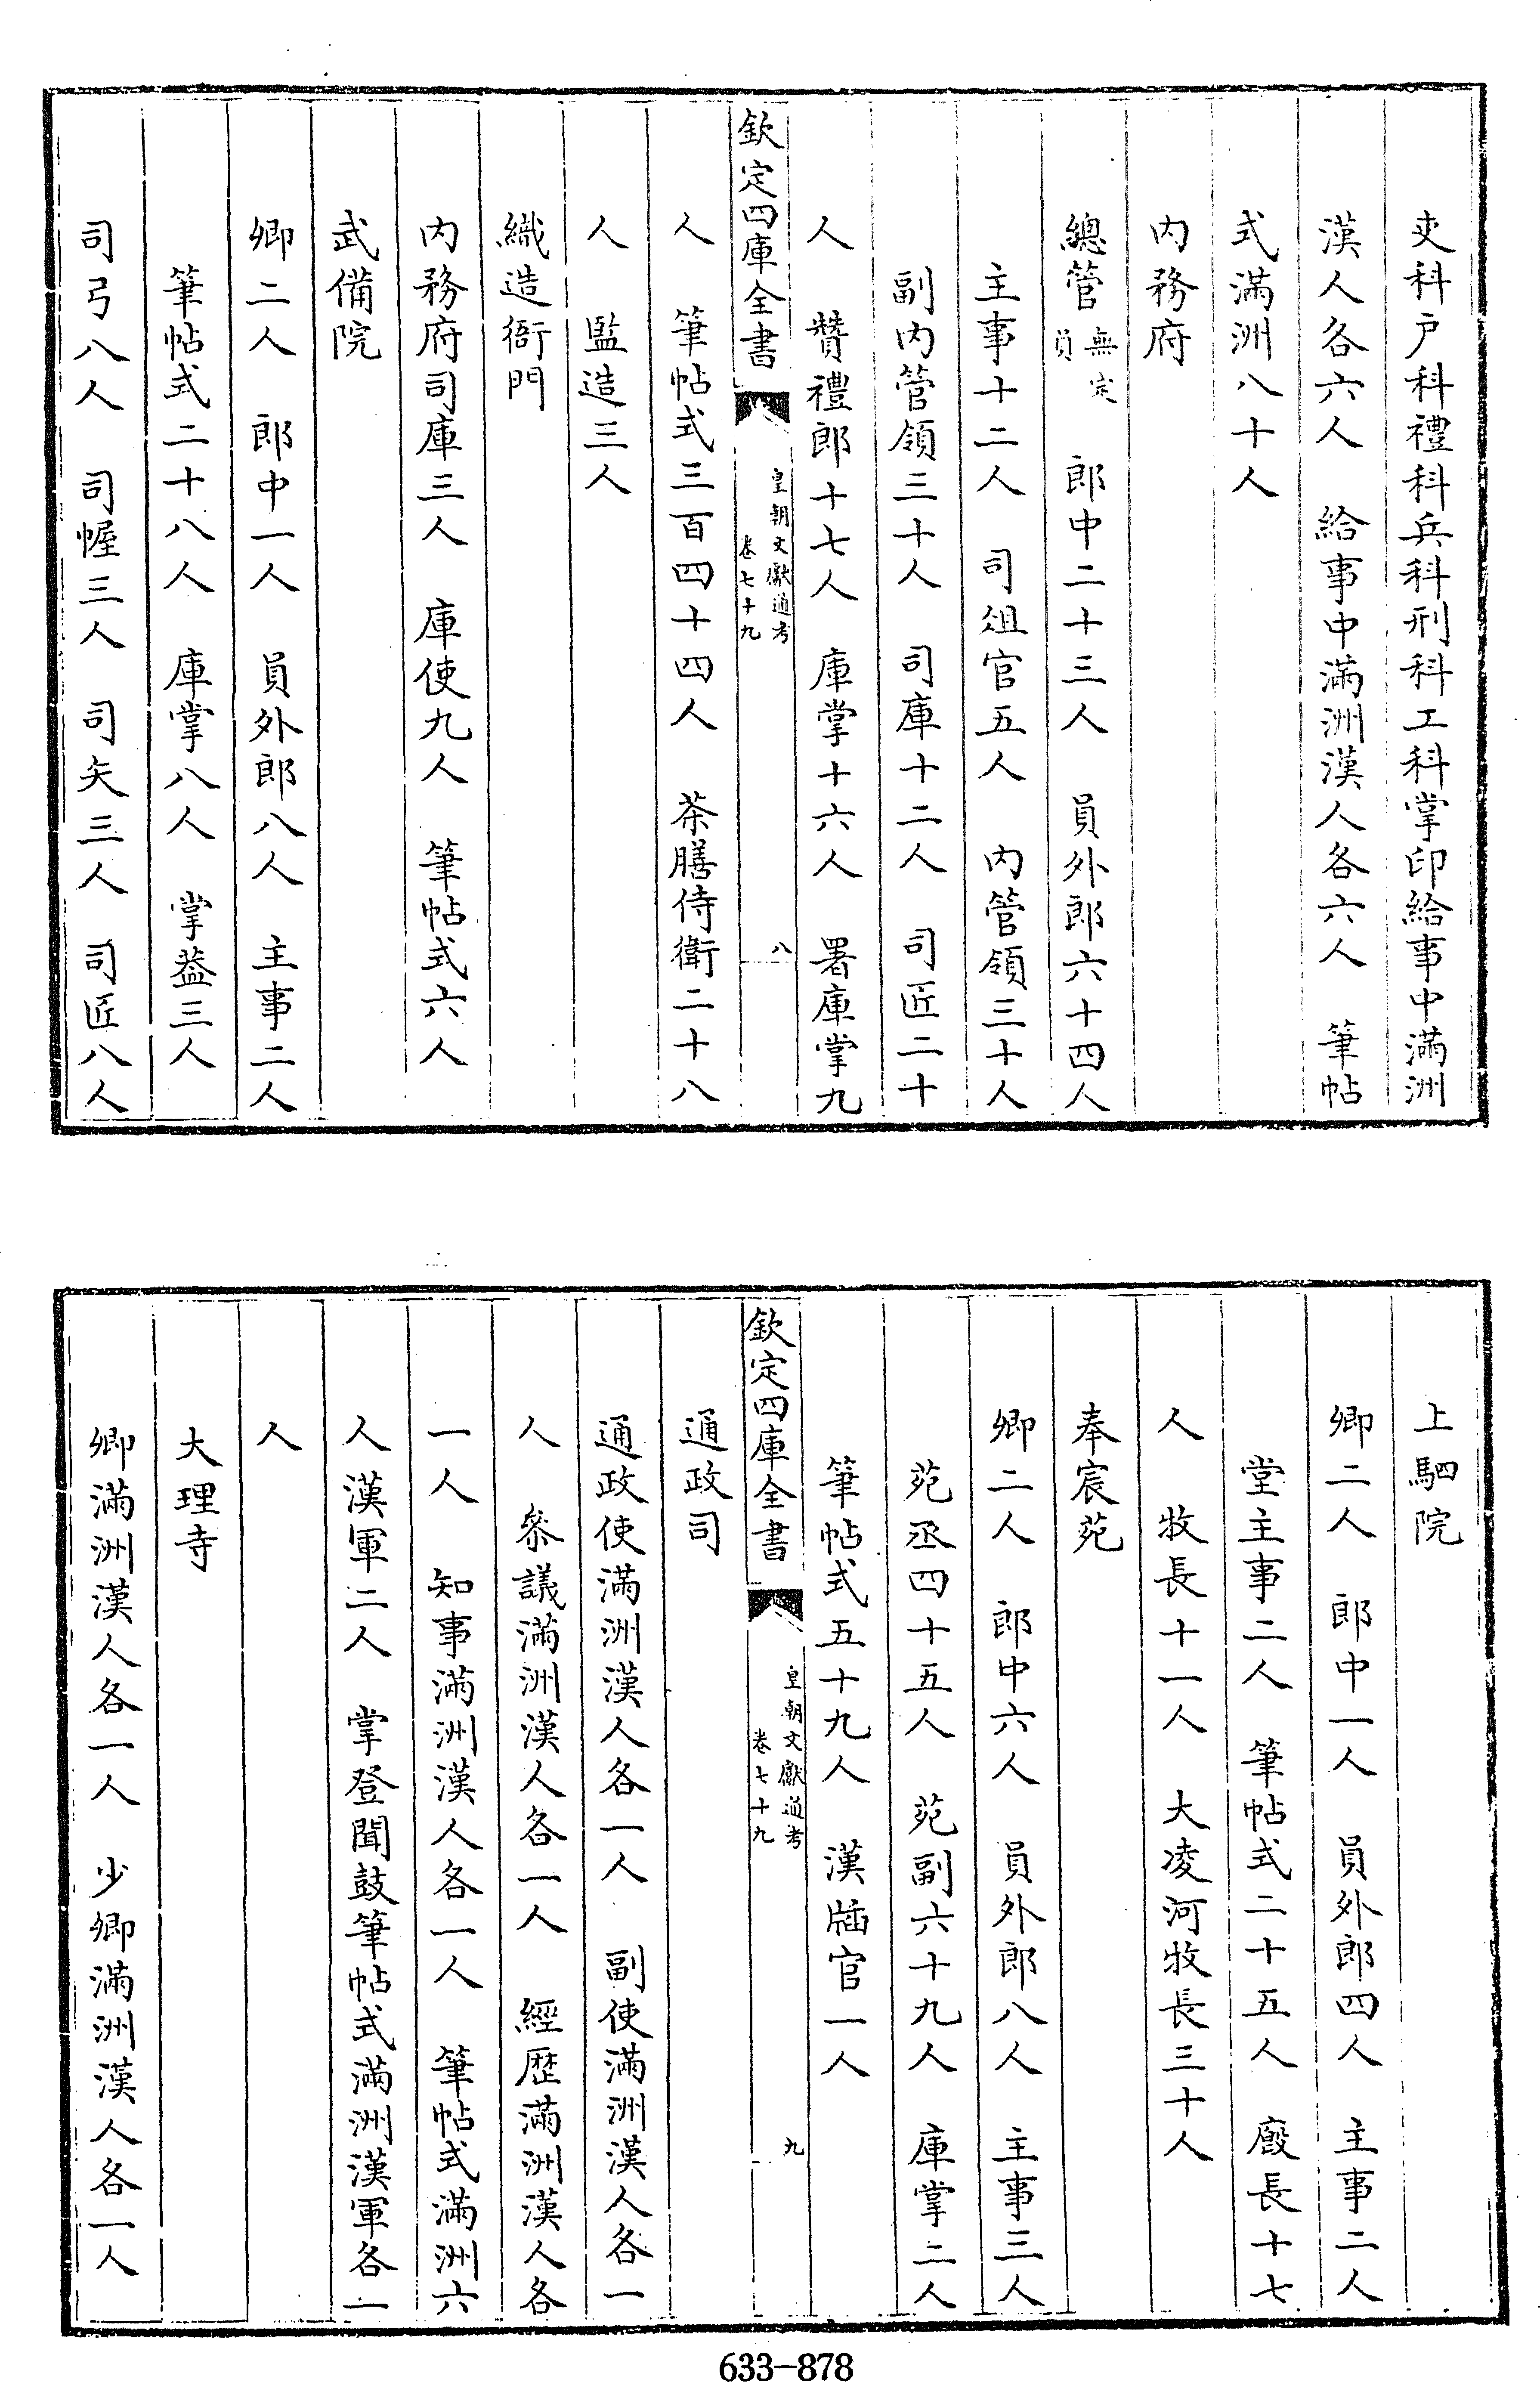 吏科户科禮科兵科刑科工科掌印給事中滿洲
漢人各六人　給事中滿洲漢人各六人　筆帖
式滿洲八十人
内務府
總管無定員　郎中二十三人　員外郎六十四人
主事十二人　司俎官五人　内管領三十人
副内管領三十人　司庫十二人　司匠二十
人　贊禮郎十七人　庫掌十六人　署庫掌九
欽定四庫全書
皇朝文獻通考
卷七十九
八
人　筆帖式三百四十四人　茶膳侍衛二十八
人　監造三人
織造衙門
内務府司庫三人　庫使九人　筆帖式六人
武備院
卿二人　郎中一人　員外郎八人　主事二人
筆帖式二十八人　庫掌八人　掌葢三人
司弓八人　司幄三人　司矢三人　司匠八人
上駟院
卿二人　郎中一人　員外郎四人　主事二人
堂主事二人　筆帖式二十五人　廄長十七
人　牧長十一人　大凌河牧長三十人
奉宸苑
卿二人　郎中六人　員外郎八人　主事三人
苑丞四十五人　苑副六十九人　庫掌二人
筆帖式五十九人　漢牐官一人
欽定四庫全書
皇朝文獻通考
卷七十九
九
通政司
通政使滿洲漢人各一人　副使滿洲漢人各一
人　叅議滿洲漢人各一人　經歷滿洲漢人各
一人　知事滿洲漢人各一人　筆帖式滿洲六
人漢軍二人　掌登聞鼓筆帖式滿洲漢軍各一
人
大理寺
卿滿洲漢人各一人　少卿滿洲漢人各一人
633-878